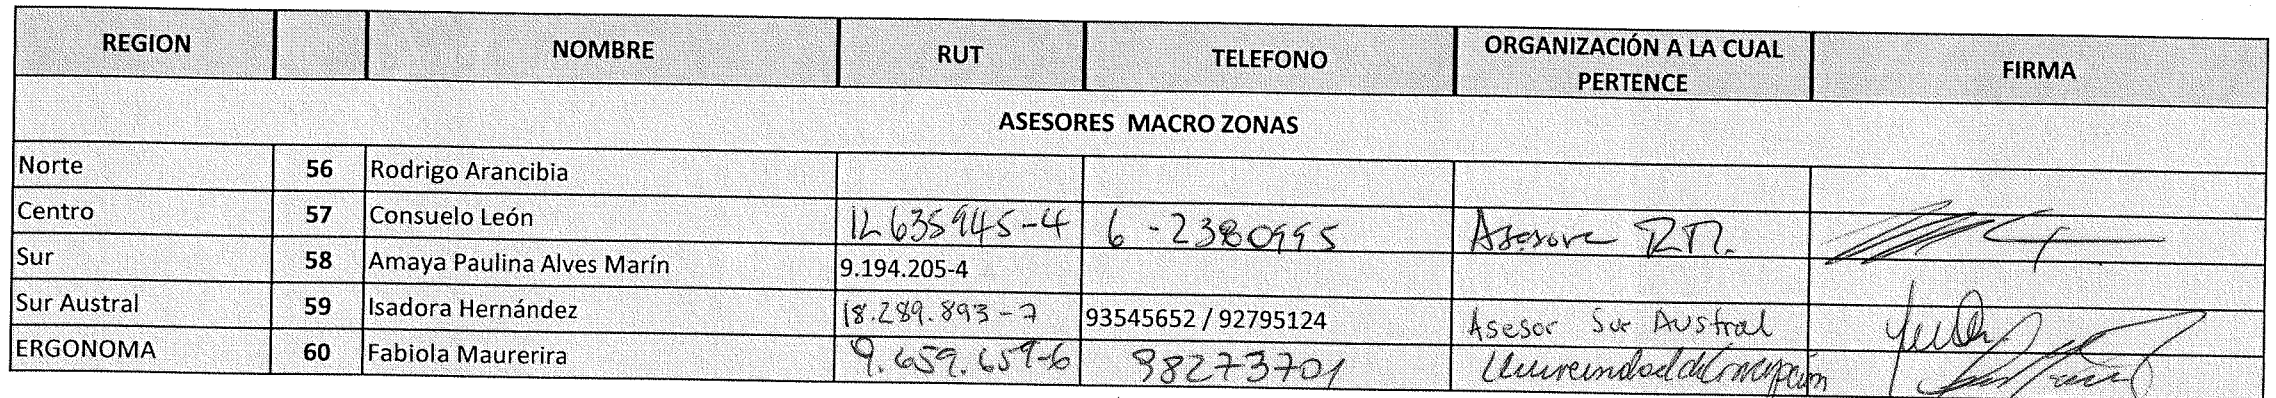 REGION NOMBRE RUT TELEFONO ORGANIZACIÓN A LA CUAL PERTENCE FIRMA
ASESORES MACRO ZONAS
Norte 56 Rodrigo Arancibia
Centro 57 Consuelo León 12.635945-4 6-2380995 Asesora
Sur 58 Amaya Paulina Alves Marín 9.194.205-4
Sur Austral 59 Isadora Hernández 18.289.893-7 93545652 / 92795124 Asesor Sur Austral
ERGONOMA 60 Fabiola Maurerira 9.659.659-6 98273701 Universidad de Concepción